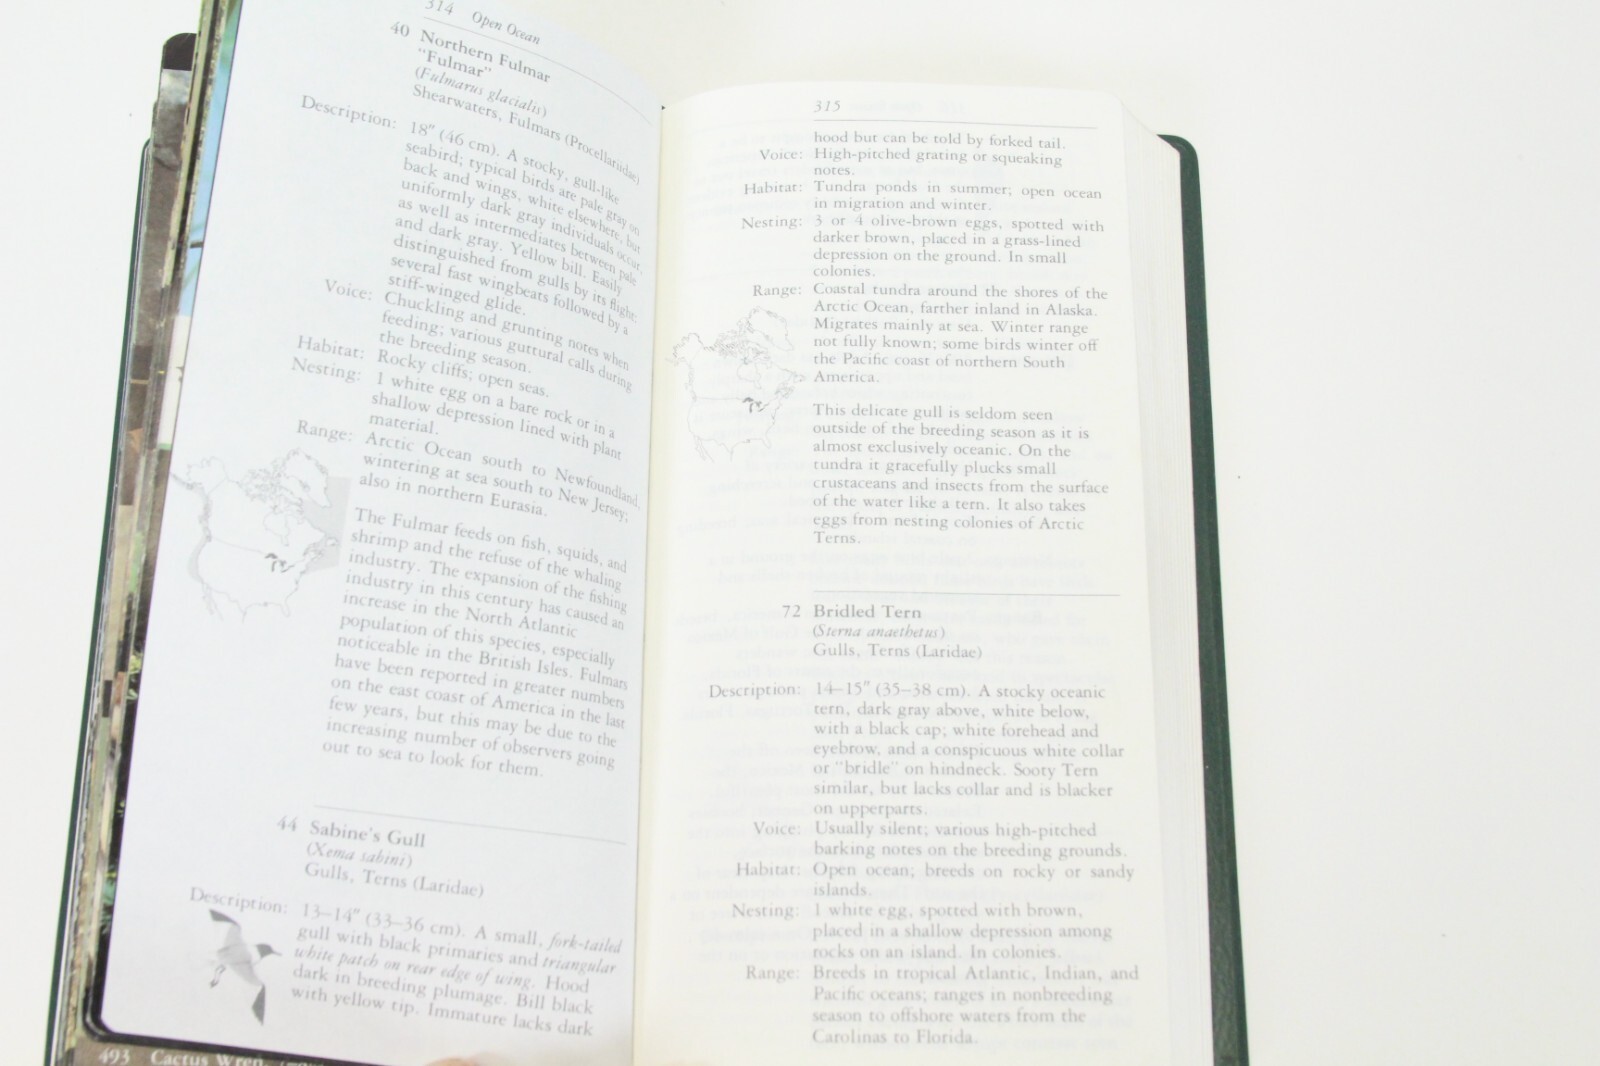 314 Open Ocean
40 Northern Fulmar
"Fulmar"
(Fulmarus glacialis)
Shearwaters, Fulmars (Procellariidae)
Description: 18" (46 cm). A stocky, gull-like
seabird; typical birds are pale gray on
back and wings, white elsewhere, but
uniformly dark gray individuals occur,
as well as intermediates between pale
and dark gray. Yellow bill. Easily
distinguished from gulls by its flight:
several fast wingbeats followed by a
stiff-winged glide.
Voice: Chuckling and grunting notes when
feeding; various guttural calls during
the breeding season.
Habitat: Rocky cliffs; open seas.
Nesting: 1 white egg on a bare rock or in a
shallow depression lined with plant
material.
Range: Arctic Ocean south to Newfoundland,
wintering at sea south to New Jersey;
also in northern Eurasia.
The Fulmar feeds on fish, squids, and
shrimp and the refuse of the whaling
industry. The expansion of the fishing
industry in this century has caused an
increase in the North Atlantic
population of this species, especially
noticeable in the British Isles. Fulmars
have been reported in greater numbers
on the east coast of America in the last
few years, but this may be due to the
increasing number of observers going
out to sea to look for them.
44 Sabine's Gull
(Xema sabini)
Gulls, Terns (Laridae)
Description: 13–14" (33–36 cm). A small, fork-tailed
gull with black primaries and triangular
white patch on rear edge of wing. Hood
dark in breeding plumage. Bill black
with yellow tip. Immature lacks dark
493 Cactus Wren,
315
hood but can be told by forked tail.
Voice: High-pitched grating or squeaking
notes.
Habitat: Tundra ponds in summer; open ocean
in migration and winter.
Nesting: 3 or 4 olive-brown eggs, spotted with
darker brown, placed in a grass-lined
depression on the ground. In small
colonies.
Range: Coastal tundra around the shores of the
Arctic Ocean, farther inland in Alaska.
Migrates mainly at sea. Winter range
not fully known; some birds winter off
the Pacific coast of northern South
America.
This delicate gull is seldom seen
outside of the breeding season as it is
almost exclusively oceanic. On the
tundra it gracefully plucks small
crustaceans and insects from the surface
of the water like a tern. It also takes
eggs from nesting colonies of Arctic
Terns.
72 Bridled Tern
(Sterna anaethetus)
Gulls, Terns (Laridae)
Description: 14–15" (35–38 cm). A stocky oceanic
tern, dark gray above, white below,
with a black cap; white forehead and
eyebrow, and a conspicuous white collar
or "bridle" on hindneck. Sooty Tern
similar, but lacks collar and is blacker
on upperparts.
Voice: Usually silent; various high-pitched
barking notes on the breeding grounds.
Habitat: Open ocean; breeds on rocky or sandy
islands.
Nesting: 1 white egg, spotted with brown,
placed in a shallow depression among
rocks on an island. In colonies.
Range: Breeds in tropical Atlantic, Indian, and
Pacific oceans; ranges in nonbreeding
season to offshore waters from the
Carolinas to Florida.